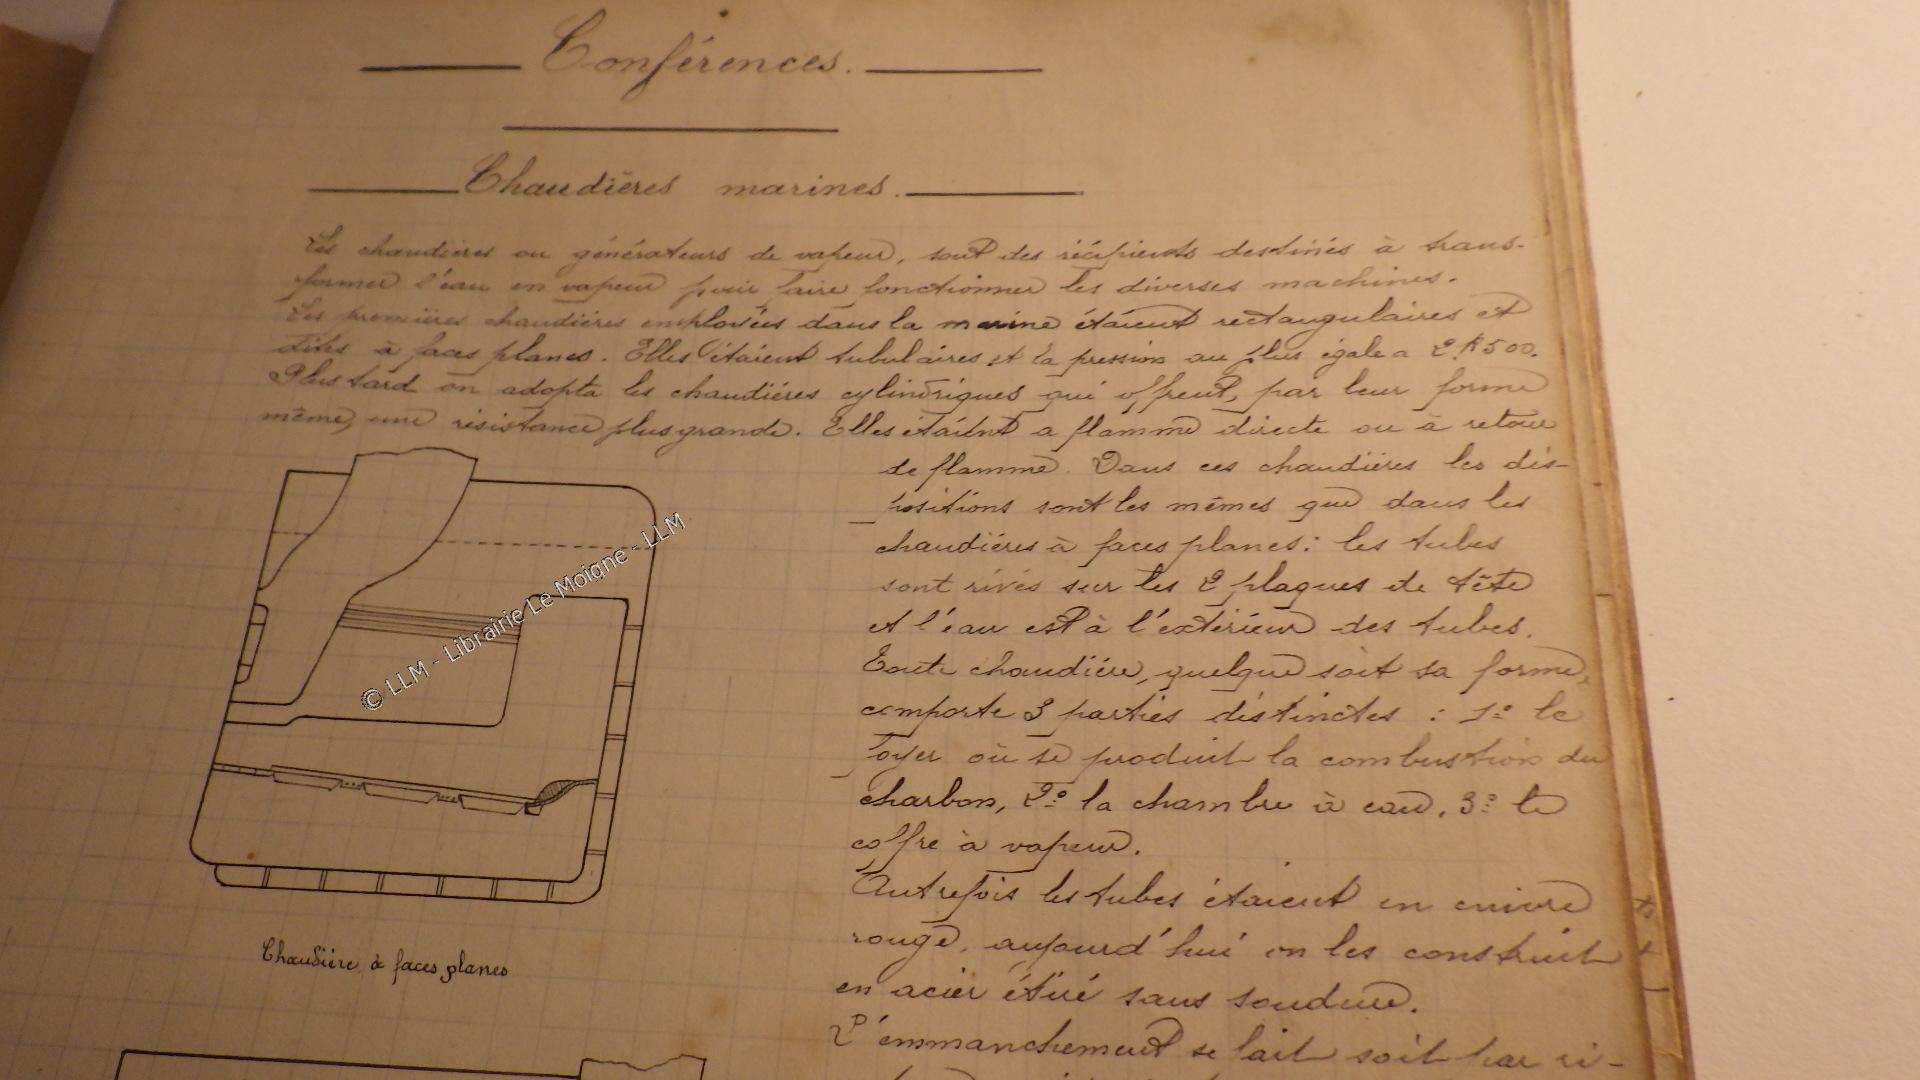 Conférences.
Chaudières marines.
Les chaudières ou générateurs de vapeur, sont des récipients destinés à trans-
former l'eau en vapeur pour faire fonctionner les diverses machines.
Les premières chaudières employées dans la marine étaient rectangulaires et
dites à faces planes. Elles étaient tubulaires et la pression au plus égale a 2.K500.
Plus tard on adopta les chaudières cylindriques qui offrent, par leur forme
même, une résistance plus grande. Elles étaient a flamme directe ou à retour
de flamme. Dans ces chaudières les dis-
positions sont les mêmes que dans les
chaudières à faces planes: les tubes
sont rivés sur les 2 plaques de tête
et l'eau est à l'extérieur des tubes.
Toute chaudière, quelque soit sa forme,
comporte 3 parties distinctes : 1º le
foyer où se produit la combustion du
charbon, 2º la chambre à eau, 3º le
coffre à vapeur.
Autrefois les tubes étaient en cuivre
rouge, aujourd'hui on les construit
en acier étiré sans soudure.
L'emmanchement se fait soit par ri-
Chaudière à faces planes
© LLM - Librairie Le Moigne - LLM